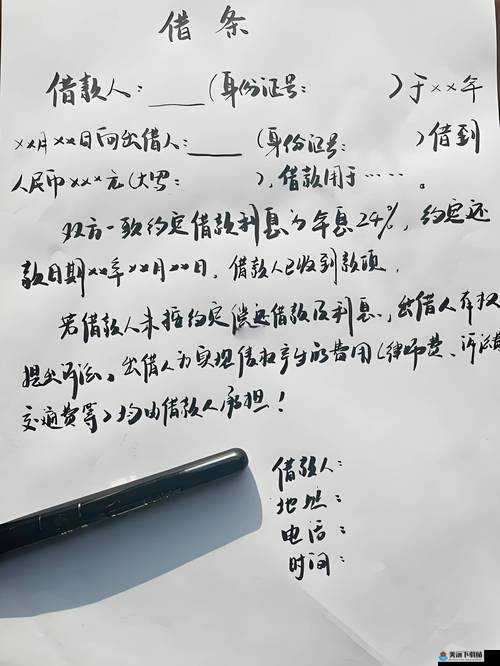 借条
借款人:____(身份证号: )于××年
××月××日向出借人:____(身份证号: )借到
人民币×××元(大写: ),借款用于……。
双方一致约定借款利息为年息24%,约定还
款日期××年××月××日,借款人已收到款项。
若借款人未按约定偿还借款及利息,出借人有权
提出诉讼。出借人为实现债权产生的费用(律师费、诉讼费
交通费等)均由借款人承担!
借款人:
地址:
电话:
时间: